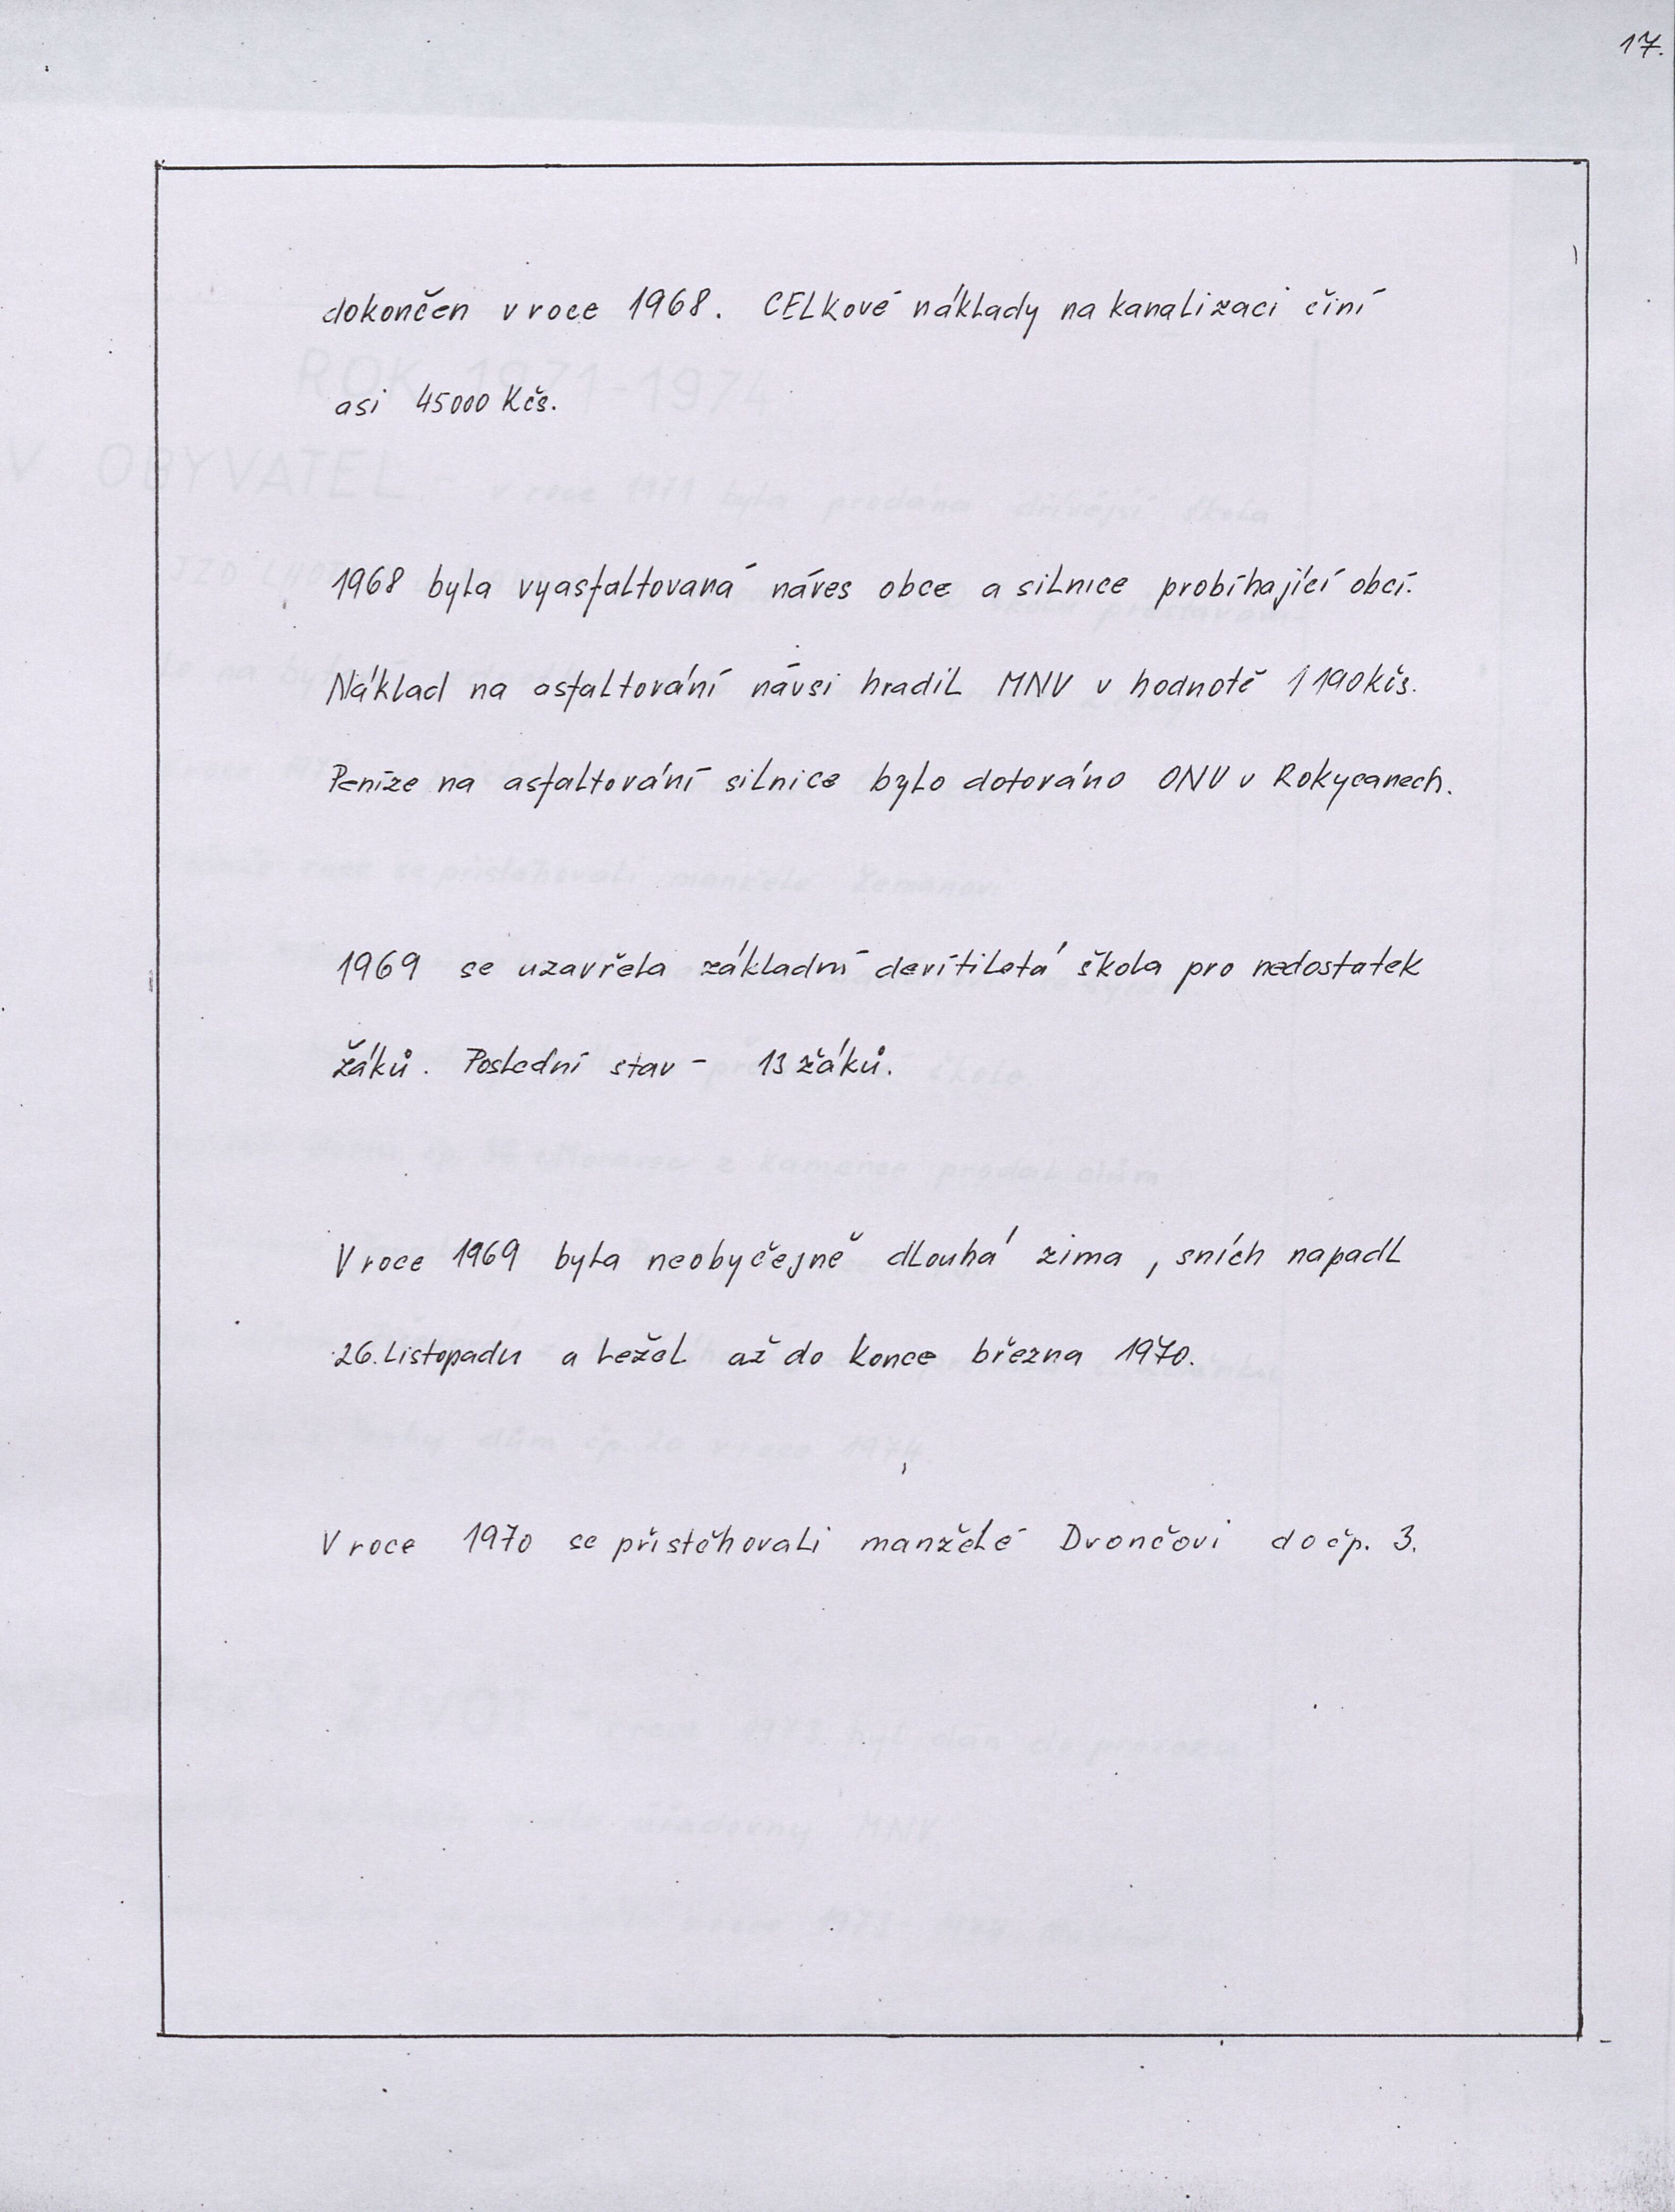 17.
dokončen v roce 1968. CELkové náklady na kanalizaci činí
asi 45000 Kčs.
1968 byla vyasfaltovaná náves obce a silnice probíhající obcí.
Náklad na asfaltování návsi hradil MNV v hodnotě 1 190 kčs.
Peníze na asfaltování silnice bylo dotováno ONV v Rokycanech.
1969 se uzavřela základní devítiletá škola pro nedostatek
žáků. Poslední stav - 13 žáků.
V roce 1969 byla neobyčejně dlouhá zima, sních napadl
26. listopadu a ležel až do konce března 1970.
V roce 1970 se přistěhovali manželé Drončovi do čp. 3.